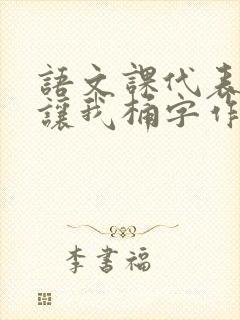 語文課代表
讓我桶字作
李書福